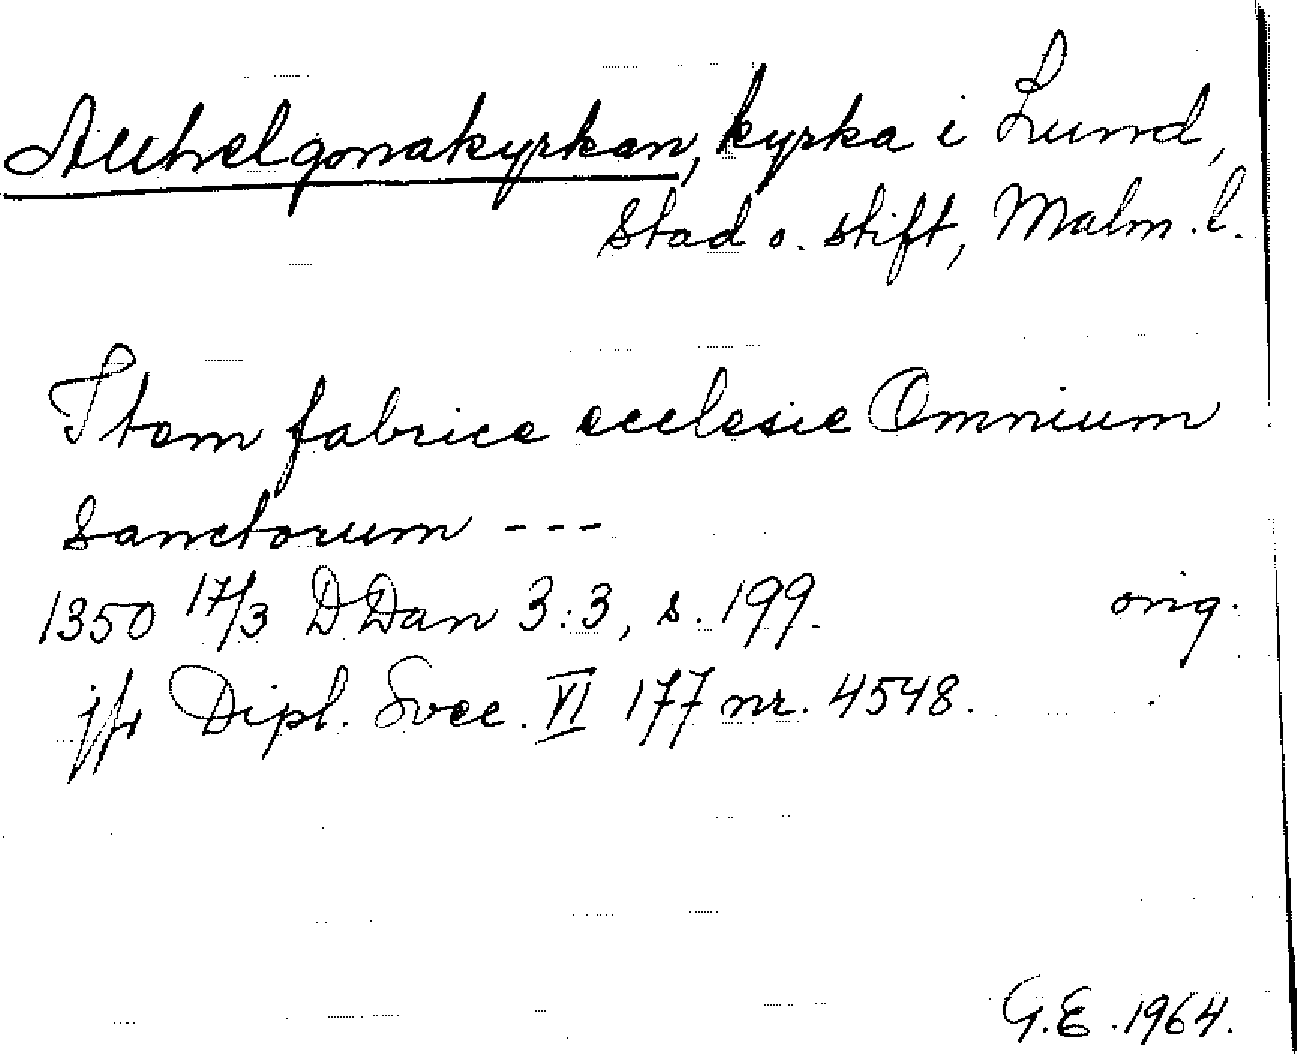 Allhelgonakyrkan, kyrka i Lund,
stad o. stift, Malm. l.
Item fabrice ecclesie Omnium
Sanctorum ---
1350 17/3 D Dan 3:3, s. 199. orig.
jfr Dipl. Svec. VI 177 nr. 4548.
G.E. 1964.